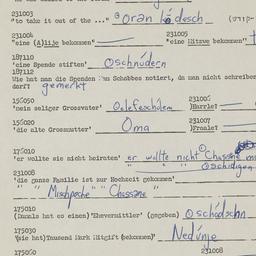 231003
"to take it out of the ..." oran kodesch
231004 231005
"eine (A)lije bekommen" "eine Mitzve bekommen"
187110
"eine Spende stiften" oschnudern
187112
Wie hat man die Spenden am Schabbes notiert, da man nicht schreiben
darf? gemerkt
156050 231006
"mein seliger Grossvater" (Harrle)
156020 231007
"die alte Grossmutter" Oma (Fraale)
175010
"er wollte sie nicht heiraten" er wollte nicht
231008 oschidigen
"die ganze Familie ist zur Hochzeit gekommen"
" " Mischpoche " " Chassene "
175010
(Damals hat es einen) "Ehevermittler" (gegeben) oschadschn
175030
"(sie hat)Tausend Mark Mitgift (bekommen)" Nedinje
175060 231008